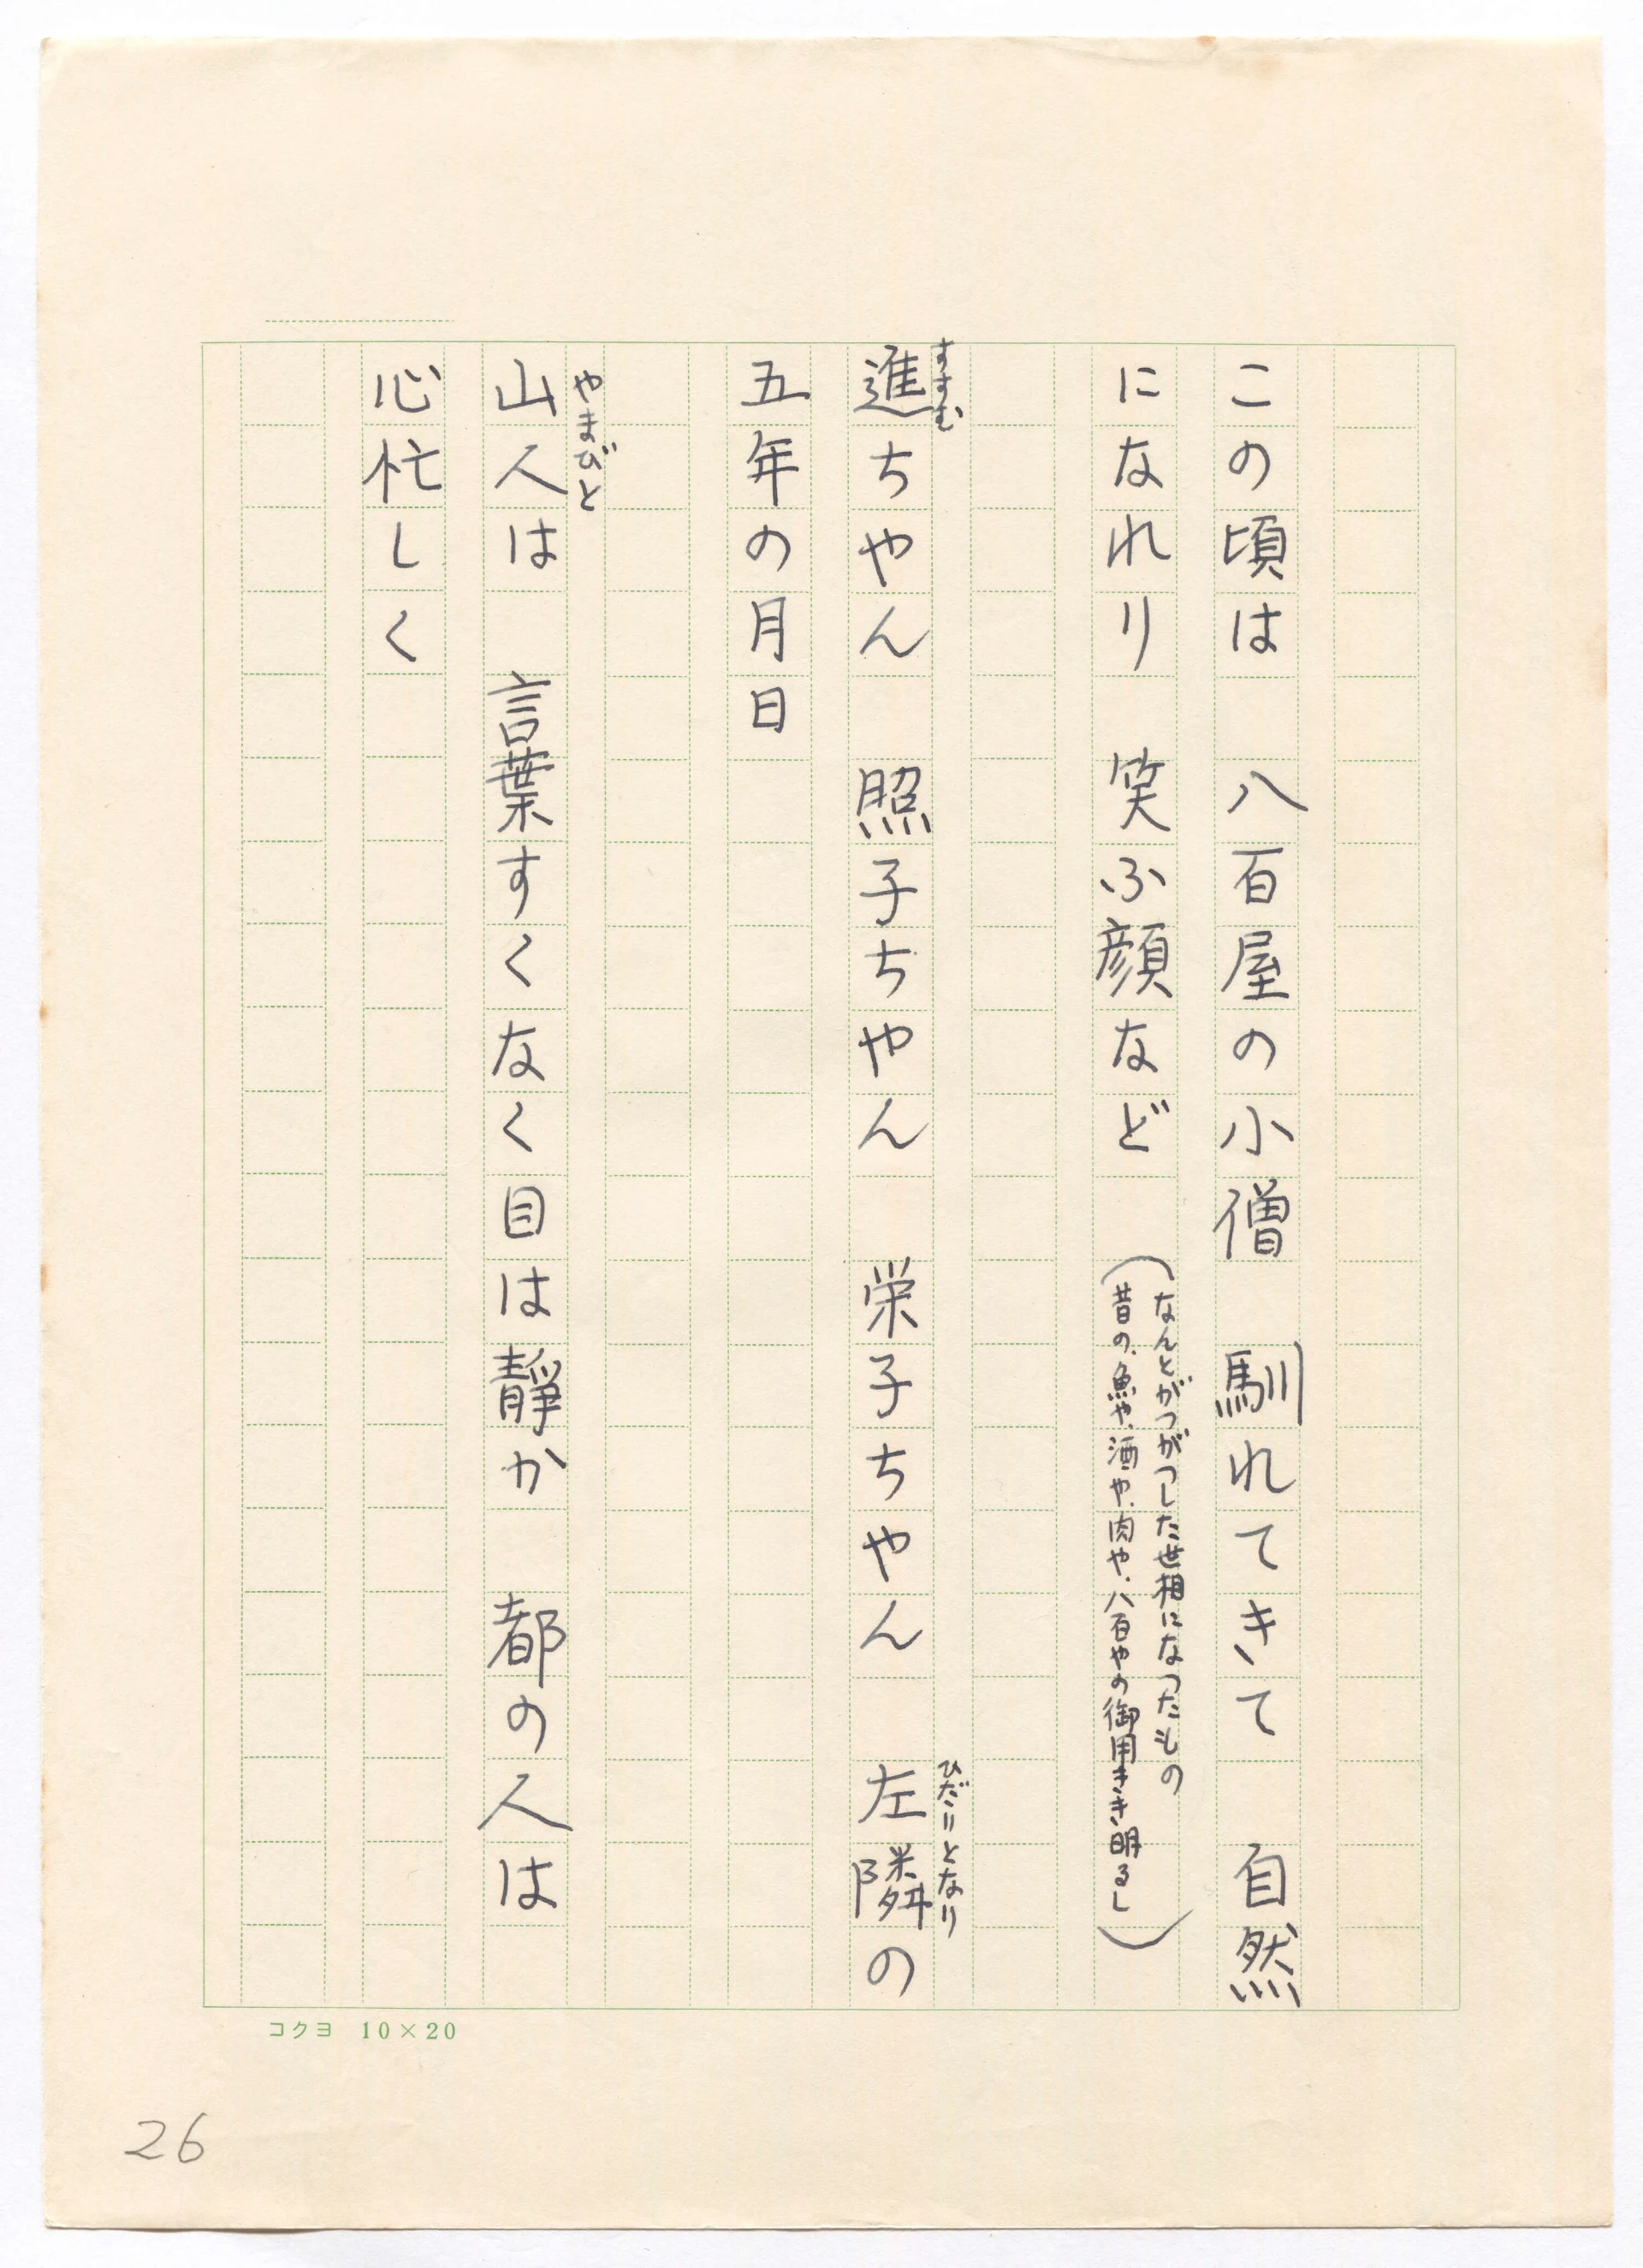 この頃は　八百屋の小僧　馴れてきて　自然
になれり　笑ふ顔など
（なんとがつがつした世相になつたもの
昔の、魚や、酒や、肉や、八百やの御用きき明るし）
すすむ
進ちやん　照子ちやん　栄子ちやん　左隣の
ひだりとなり
五年の月日
やまびと
山人は　言葉すくなく目は靜か　都の人は
心忙しく
コクヨ 10×20
26